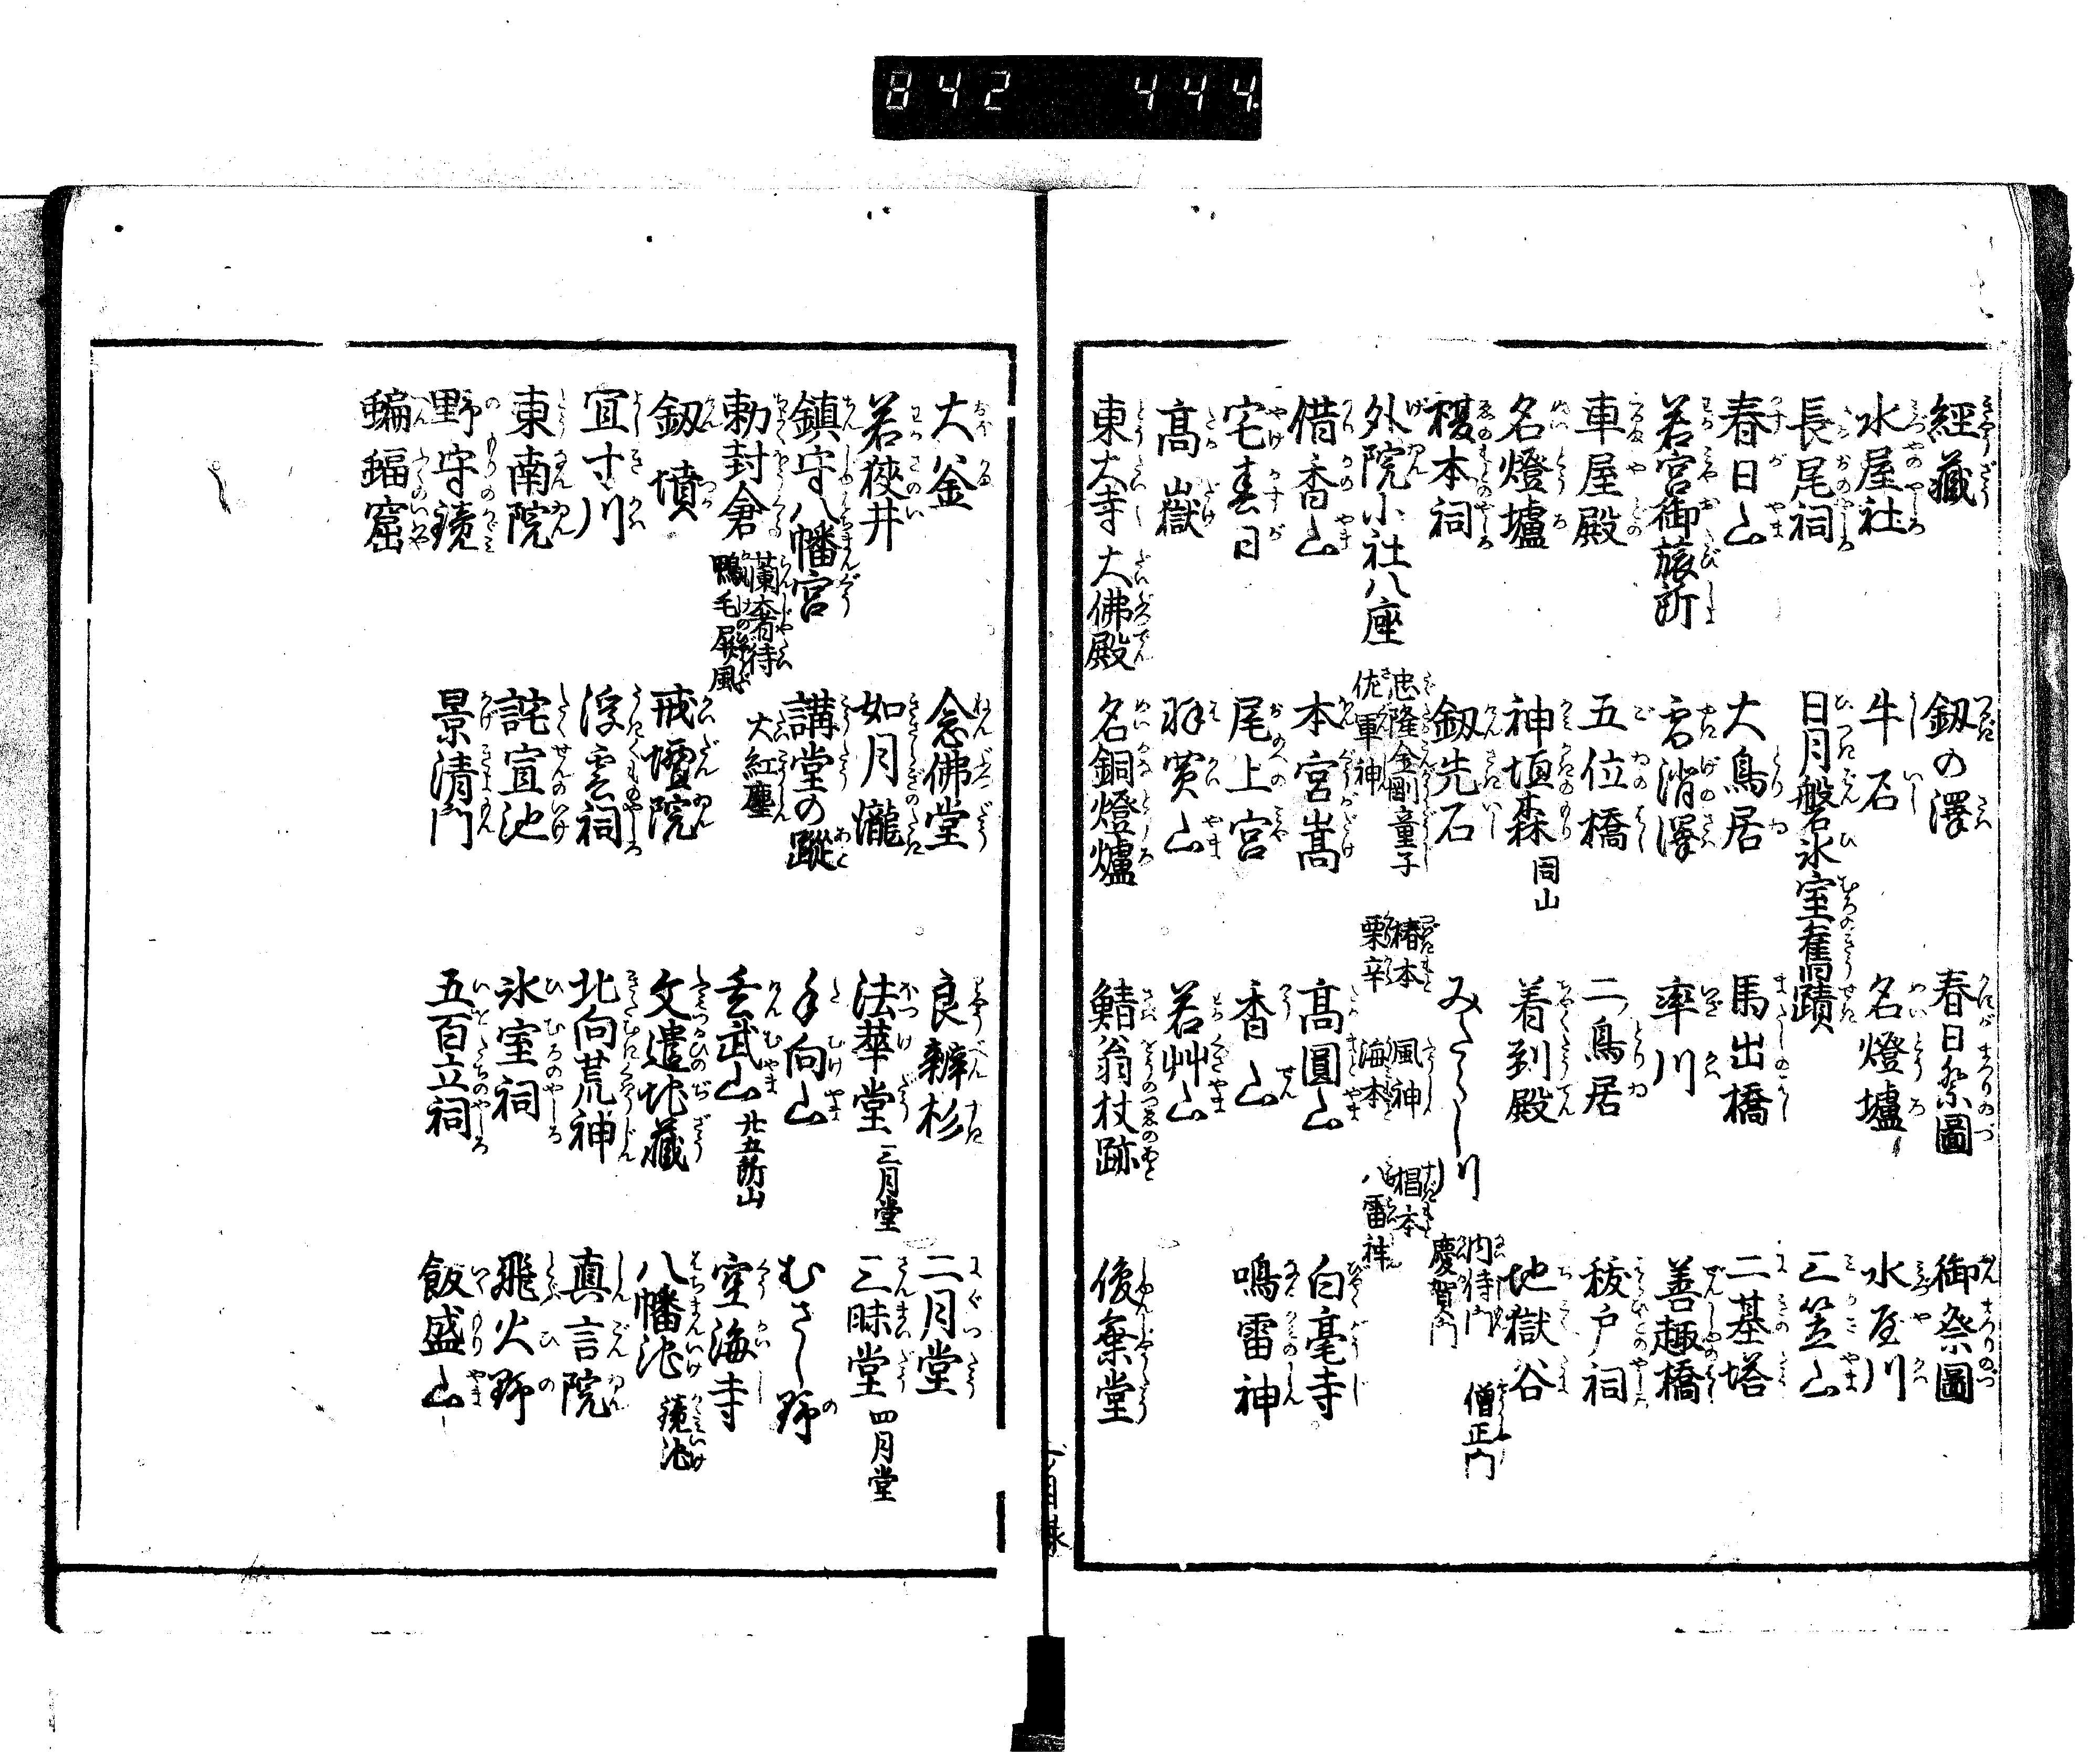 842 444
經藏 釼の澤 春日祭圖 御祭圖
水屋社 牛石 名燈壚 水屋川
長尾祠 日月磐氷室舊蹟 三笠山
春日山 大鳥居 馬出橋 二基塔
若宮御旅所 雪消澤 率川 善趣橋
車屋殿 五位橋 二鳥居 祓戸祠
名燈壚 神垣森 同山 着到殿 地獄谷
榎本祠 釼先石 みたらし川 内侍門 慶賀門 僧正門
外院小社八座 忠隆金剛童子 佐軍神 椿本 栗辛 風神 海本 椙本 八雷神
借香山 本宮嵩 高圓山 白毫寺
宅春日 尾上宮 香山 鳴雷神
髙嶽 羽買山 若艸山
東大寺大佛殿 名銅燈爐 鯖翁杖跡 俊乗堂
目録
大釜 念佛堂 良辨杉 二月堂
若狹井 如月瀧 法華堂 三月堂 三昧堂 四月堂
鎮守八幡宮 講堂の蹤 手向山 むさし野
勅封倉 蘭奢待 鴨毛屏風 大紅塵 玄武山 廿五所山 空海寺
釼墳 戒壇院 文遣地藏 八幡池 鏡池
宜寸川 浮雲祠 北向荒神 真言院
東南院 詫宣池 氷室祠 飛火野
野守鏡 景清門 五百立祠 飯盛山
蝙蝠窟